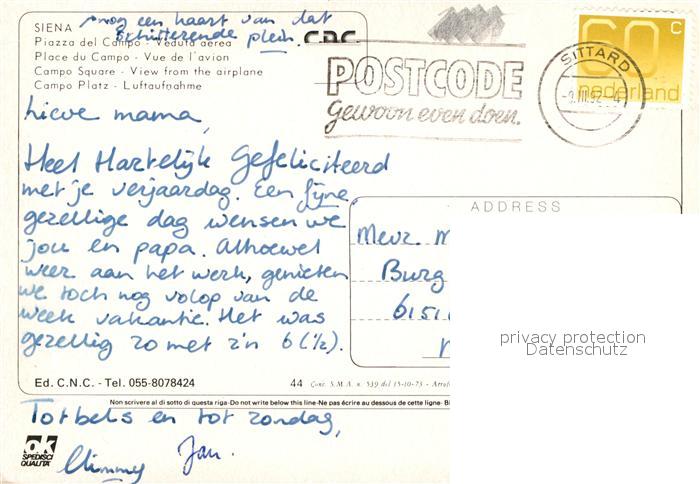 nog een kaart van dat
schitterende plein.
SIENA
Piazza del Campo - Veduta aerea
Place du Campo - Vue de l'avion
Campo Square - View from the airplane
Campo Platz - Luftaufnahme
POSTCODE
Gewoon even doen.
SITTARD
60 c
nederland
Lieve mama,
Heel Hartelijk Gefeliciteerd
met je verjaardag. Een fijne
gezellige dag wensen we
jou en papa. Alhoewel
weer aan het werk, genieten
we toch nog volop van de
week vakantie. Het was
gezellig zo met z'n 6 (½).
ADDRESS
Mevr. M
Burg
6151
privacy protection
Datenschutz
Ed. C.N.C. - Tel. 055-8078424
44 Conc. S.M.A. n. 539 del 15-10-73 -
Non scrivere al di sotto di questa riga-Do not write below this line-Ne pas écrire au dessous de cette ligne-
Tot bels en tot zondag,
Jan.
ok
SPEDISCI
QUALITA'